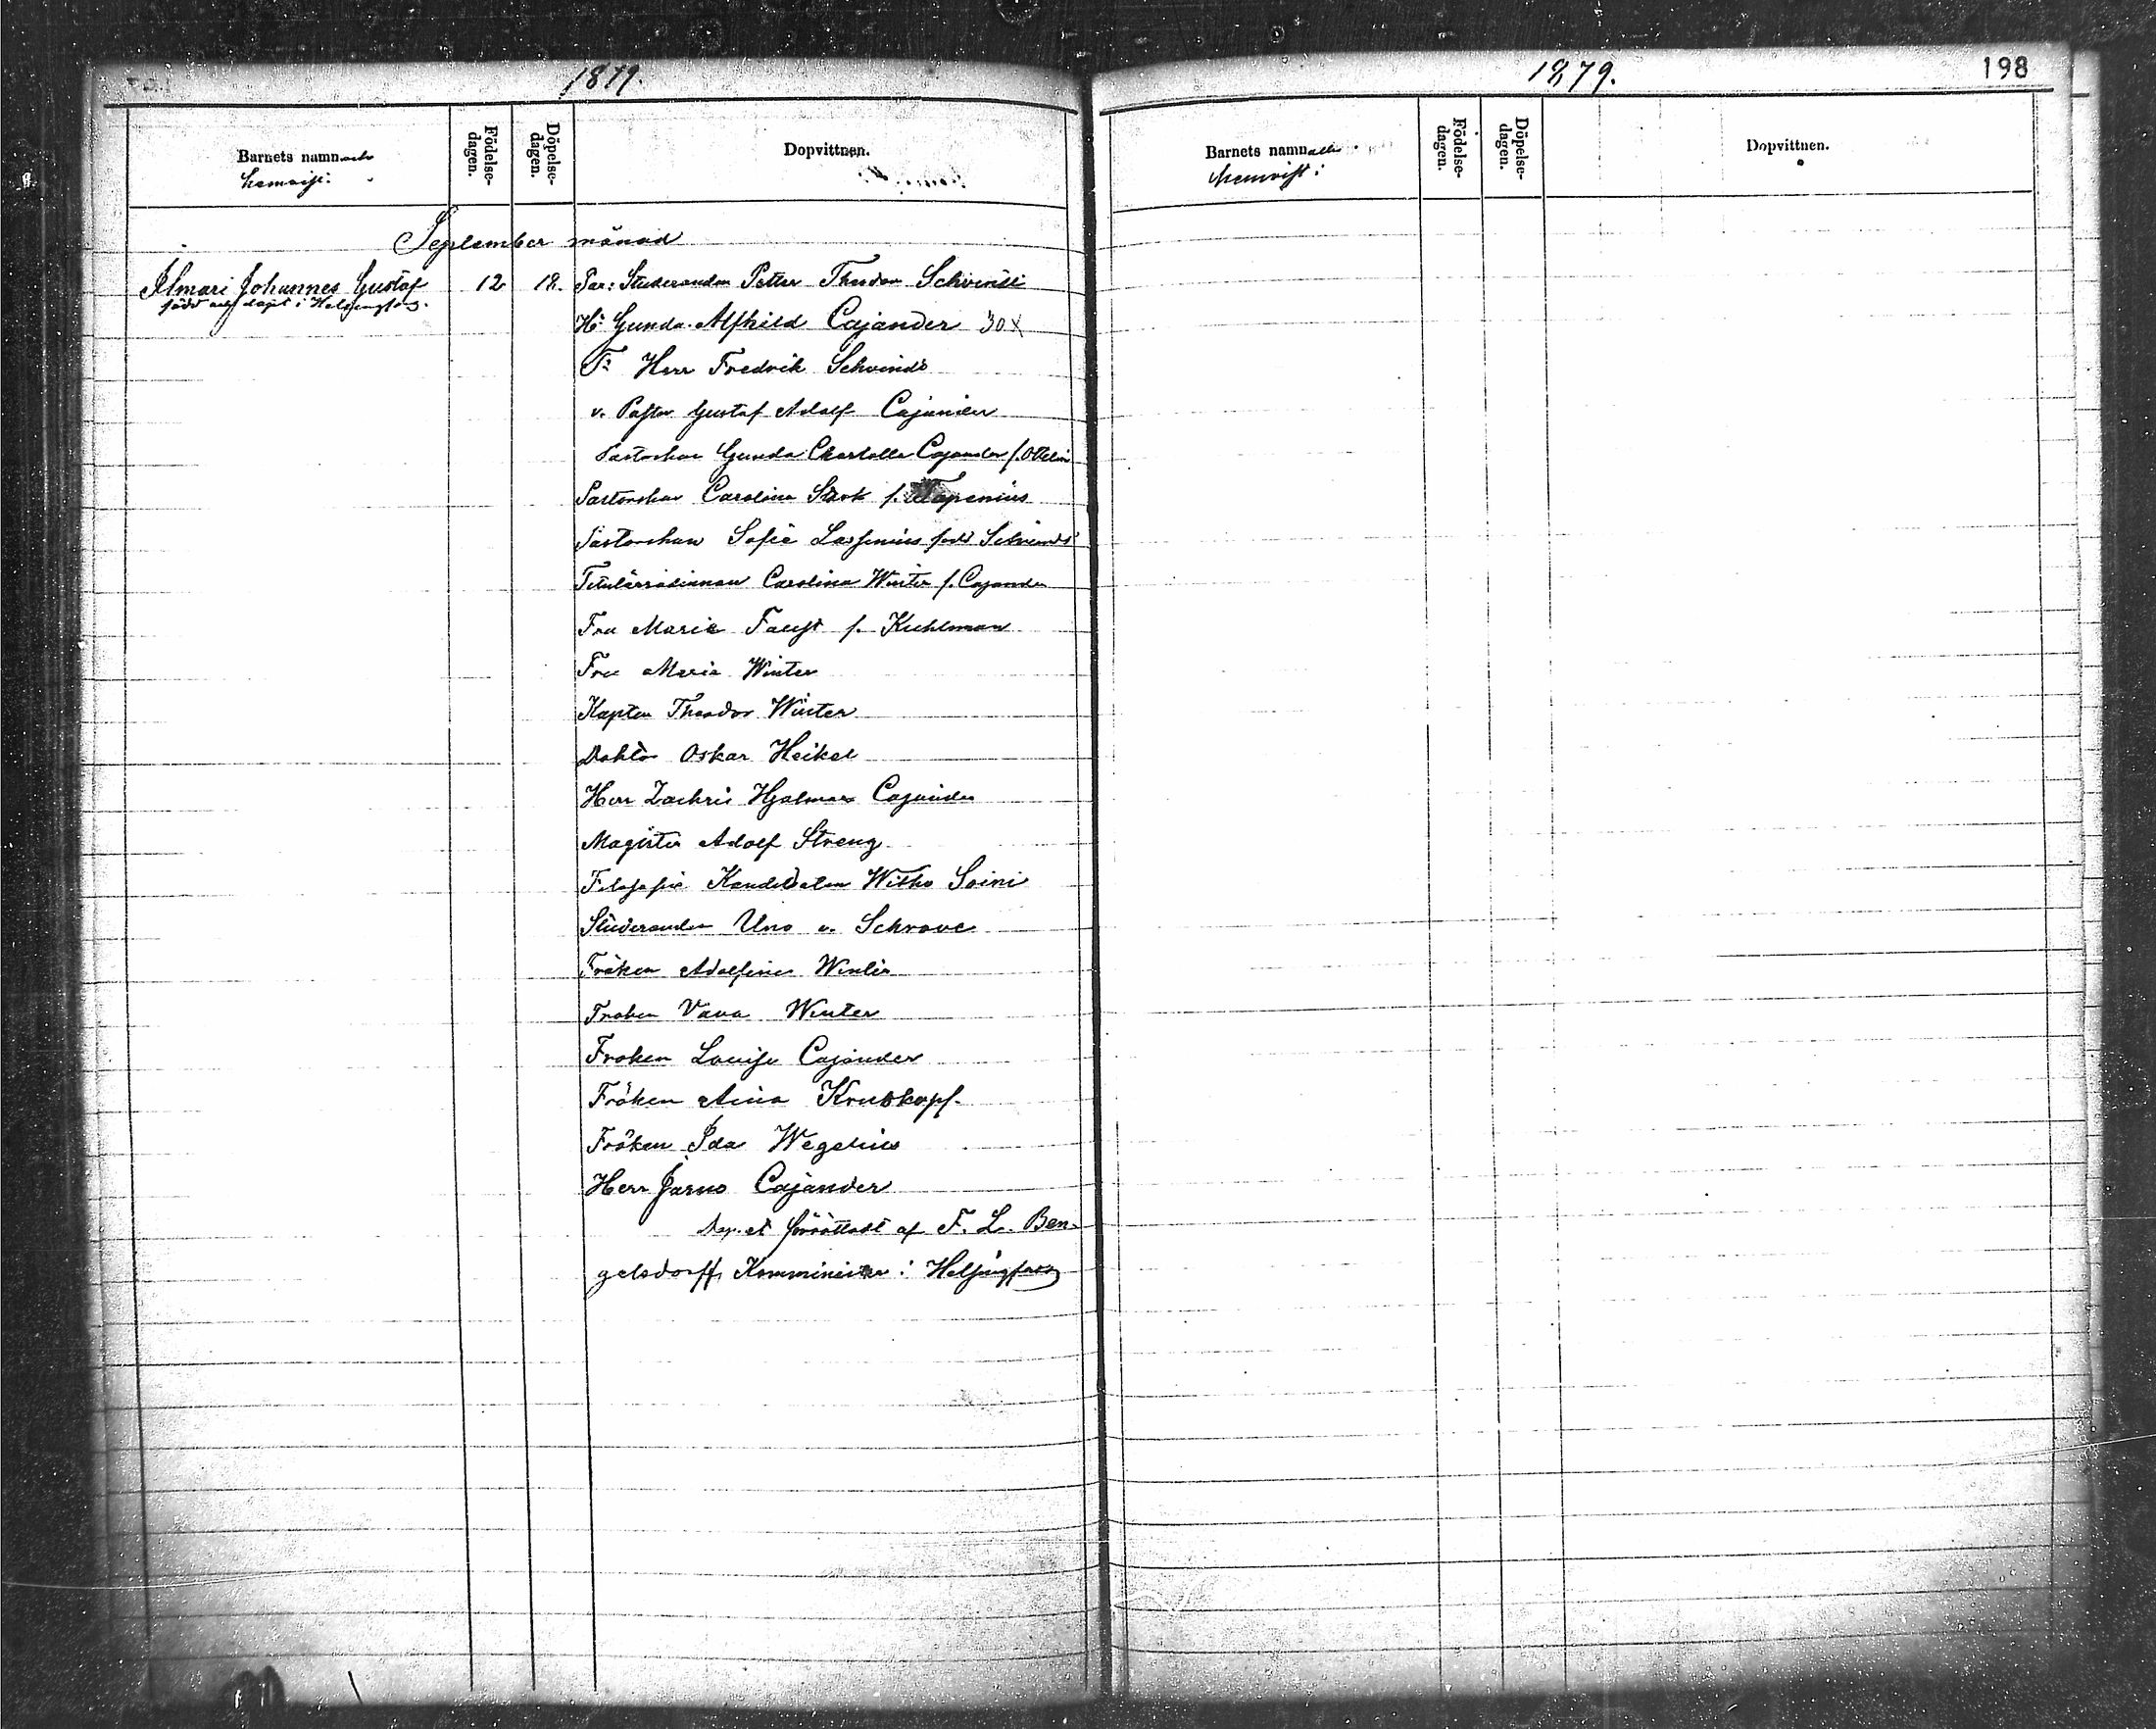 1879.
Barnets namn och
hemvist:
Födelse-
dagen.
Döpelse-
dagen.
Dopvittnen.
September månad
Ilmari Johannes Gustaf 12 18. Par: Studeranden Petter Theodor Schvindt
född och döpt i Helsingfors.
H: Gunda Alfhild Cajander 30
F: Herr Fredrik Schvindt
v. Pastor Gustaf Adolf Cajander
Pastorskan Gunda Charlotta Cajander f.
Pastorskan Carolina f.
Pastorskan Sofie Lassenius född Schvindt
Titulärrådinnan Carolina Winter f. Cajander
Fru Marie Faust f. Kuhlman
Fru Maria Winter
Kapten Theodor Winter
Doktor Oskar Heikel
Herr Zachris Hjalmar Cajander
Magister Adolf Streng
Filosofie Kandidaten Witho Soini
Studeranden Uno v. Schrove
Fröken Adolfine Winter
Fröken Vava Winter
Fröken Louise Cajander
Fröken Aina Kruskopf.
Fröken Ida Wegelius
Herr Jarno Cajander
Dopet förrättadt af F. L. Ben-
gelsdorff, Komminister i Helsingfors
1879.
198
Barnets namn och
hemvist:
Födelse-
dagen.
Döpelse-
dagen.
Dopvittnen.